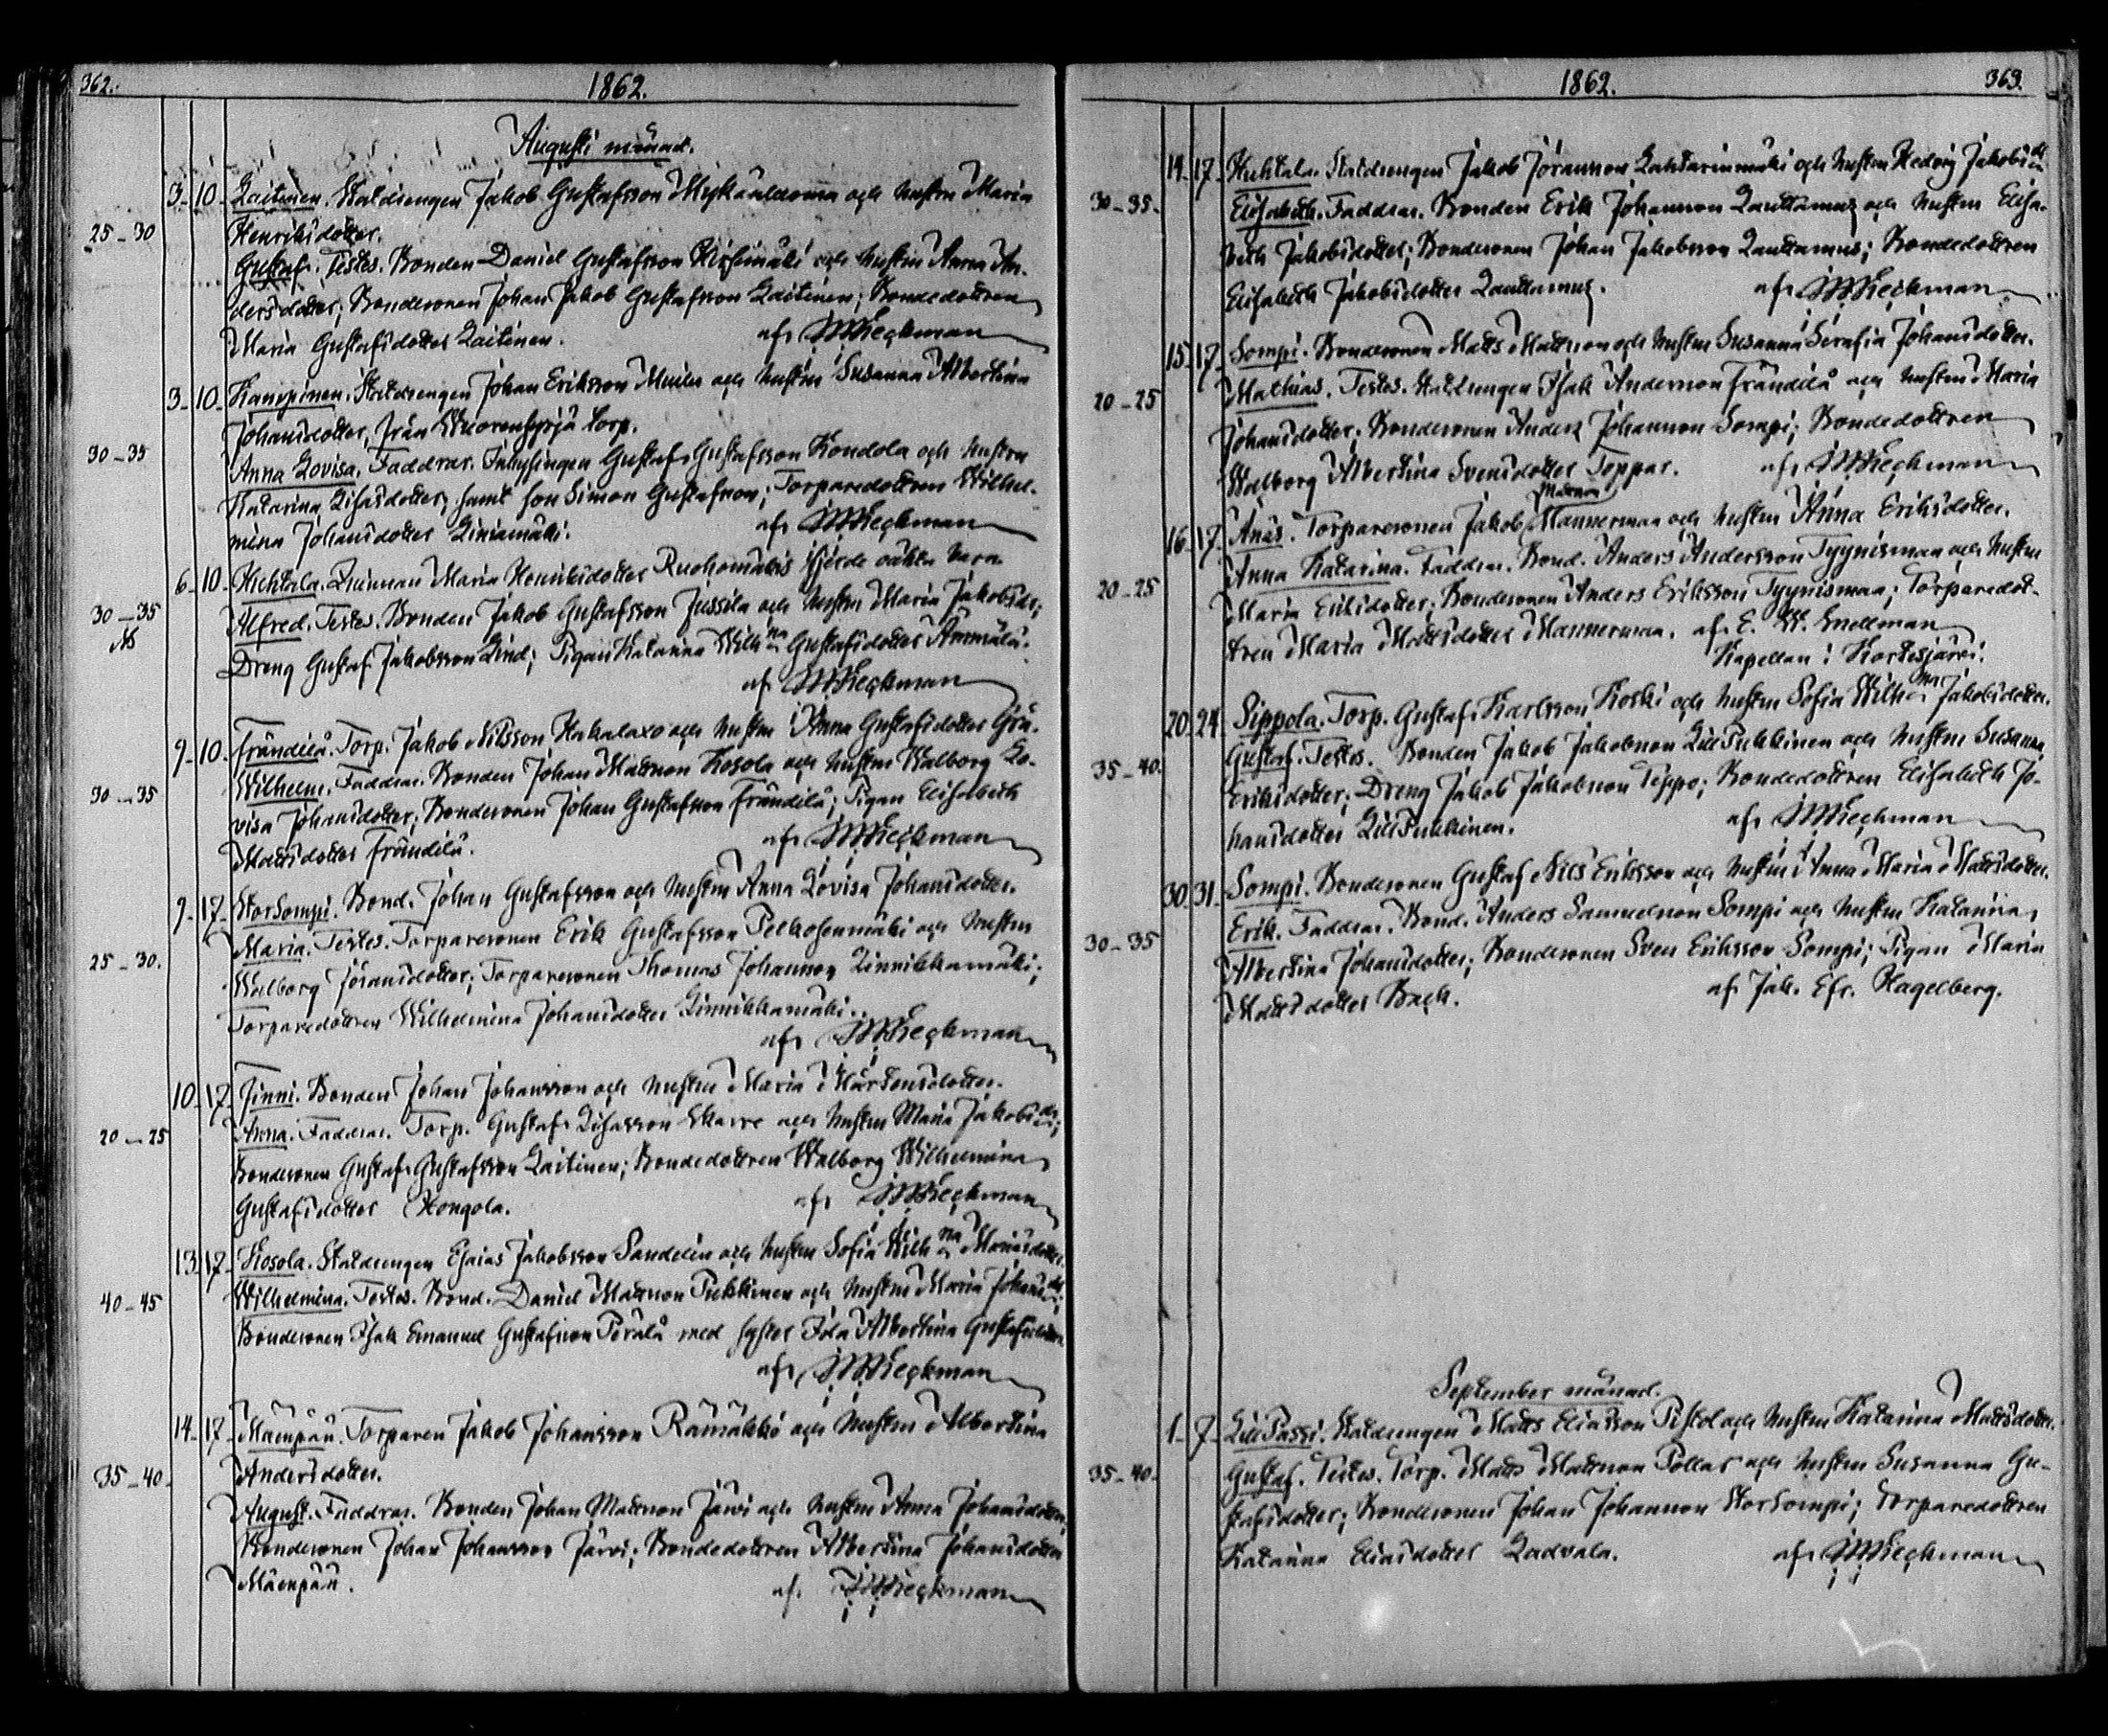 362.
1862.
Augusti månad.
3. 10. Laitinen. Statdrengen Jakob Gustafsson och hustru Maria
25-30 Henriksdotter.
Gustaf. Testes. Bonden Daniel Gustafsson och hustru Anna An-
dersdotter; Bondesonen Johan Jakob Gustafsson Laitinen; Bondedottren
Maria Gustafsdotter Laitinen. af
3. 10. Kamppinen. Statdrengen Johan Eriksson och hustru Susanna Albertina
Johansdotter, från torp.
30-35 Anna Lovisa. Faddrar. Inhysingen Gustaf Gustafsson Kondola och hustru
Katarina Lisasdotter, samt son Simon Gustafsson; Torparedottren Wilhel-
mina Johansdotter Liniamäki. af
6. 10. Huhtala. Qvinnan Maria Henriksdotter Ruohomäkis fjerde oäkta barn
30-35 Alfred. Testes. Bonden Jakob Gustafsson Jussila och hustru Maria Jakobsdr;
Dreng Gustaf Jakobsson Lind; Pigan Katarina Wilhna Gustafsdotter Ämmälä.
af
9. 10. Frändilä. Torp. Jakob Nilsson Hakalaxo och hustru Anna Gustafsdotter
30-35 Wilhelm. Faddrar. Bonden Johan Mattsson Kosola och hustru Walborg Lo-
visa Johansdotter; Bondesonen Johan Gustafsson Frändilä; Pigan Elisabeth
Mattsdotter Frändilä. af
9. 17. Storsompi. Bond. Johan Gustafsson och hustru Anna Lovisa Johansdotter.
25-30. Maria. Testes. Torparesonen Erik Gustafsson Pelkosenmäki och hustru
Walborg Göransdotter; Torparesonen Thomas Johansson Linnikkamäki;
Torparedottren Wilhelmina Johansdotter Linnikkamäki.
af
10. 17. Finni. Bonden Johan Johansson och hustru Maria Mårtensdotter.
20-25 Anna. Faddrar. Torp. Gustaf Lisasson och hustru Maria Jakobsdr;
Bondesonen Gustaf Gustafsson Laitinen; Bondedottren Walborg Wilhelmina
Gustafsdotter Hongola. af
13. 17. Kosola. Statdrengen Esaias Jakobsson Sandelin och hustru Sofia Wilhna Mariasdotter.
40-45 Wilhelmina. Testes. Bond. Daniel Mattsson Pukkinen och hustru Maria Johansdr;
Bondesonen Isak Emanuel Gustafsson Perälä med syster Ida Albertina Gustafsdotter.
af
14. 17. Mäenpää. Torparen Jakob Johansson Rämäkkö och hustru Albertina
35-40. Andersdotter.
August. Faddrar. Bonden Johan Mattsson Järvi och hustru Anna Johansdotter;
Bondesonen Johan Johansson Järvi; Bondedottren Albertina Johansdotter
Mäenpää. af
1862.
363.
14. 17. Huhtala. Statdrengen Jakob Göransson Lahtarinmäki och hustru Hedvig Jakobsdr
30-35. Elisabeth. Faddrar. Bonden Erik Johansson Lauttamus och hustru Elisa-
beth Jakobsdotter; Bondesonen Johan Jakobsson Lauttamus; Bondedottren
Elisabeth Jakobsdotter Lauttamus. af
15. 17. Sompi. Bondesonen Matts Mattsson och hustru Susanna Serafia Johansdotter.
20-25 Mathias. Testes. Statdrengen Isak Andersson Frändilä och hustru Maria
Johansdotter; Bondesonen Anders Johansson Sompi; Bondedottren
Walborg Albertina Svensdotter Toppar. af
Mattsson
16. 17. Anäs. Torparesonen Jakob Mannermaa och hustru Anna Eriksdotter.
20-25 Anna Katarina. Faddrar. Bond. Anders Andersson Tyynismaa och hustru
Maria Eriksdotter; Bondesonen Anders Eriksson Tyynismaa; Torparedot-
tren Maria Mattsdotter Mannermaa. af E. W. Snellman
Kapellan i Kortesjärvi.
20. 24. Sippola. Torp. Gustaf Karlsson Koski och hustru Sofia Wilhna Jakobsdotter.
35-40. Gustaf. Testes. Bonden Jakob Jakobsson LillPukkinen och hustru Susanna
Eriksdotter; Dreng Jakob Jakobsson Teppo; Bondedottren Elisabeth Jo-
hansdotter LillPukkinen. af
30. 31. Sompi. Bondesonen Gustaf Nils Eriksson och hustru Anna Maria Mattsdotter.
30-35 Erik. Faddrar. Bond. Anders Samuelsson Sompi och hustru Katarina
Albertina Johansdotter; Bondesonen Sven Eriksson Sompi; Pigan Maria
Mattsdotter Back. af Jak. Efr. Hagelberg.
September månad.
1. 7. LillPassi. Statdrengen Matts Eliasson Pistol och hustru Katarina Mattsdotter.
35-40. Gustaf. Testes. Torp. Matts Mattsson Pollar och hustru Susanna Gu-
stafsdotter; Bondesonen Johan Johansson Storsompi; Torparedottren
Katarina Eliasdotter Ladvala. af